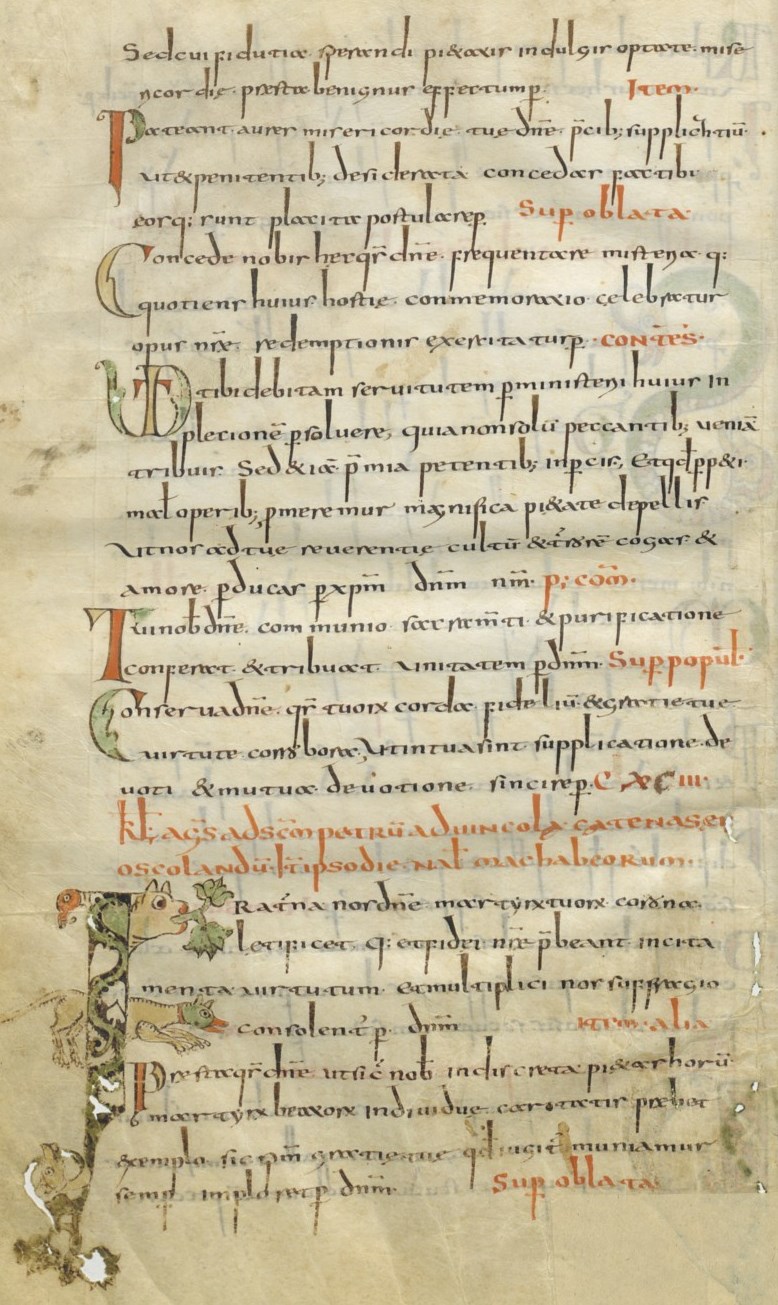 Sed cui fidutia sperandi pi&atis indulgis optatae mise
ricordie presta benignus effectum p̄. Item.
Pateant aures misericordie tue dn̄e p̄cib; supplicantiū.
ut & penitentib; desiderata concedas fac tibi
eorq: sunt placita postulare p̄. Sup oblata
Concede nobis hec qs̄ dn̄e frequentare misteria q:
quotiens huius hostie conmemoratio celebratur
opus nr̄ae redemptionis exercitatur p̄. contes̄.
UT D tibi debitam servitutem p ministerii huius in
pletionē psoluere, quia non solū peccantib; veniā
tribuis Sed & iā p̄mia petentib; inpercis, Et qd̄ pp&i
mal operib; pmeremur magnifica pi&ate depellis
Ut nos ad tue reverentie cultū & t̄rorē cogas &
amore pducas p xp̄m dn̄m nr̄m p; com̄.
Tui nob dn̄e communio sacramn̄ti & purificatione
conferat & tribuat unitatem p dn̄m Sup popul̄.
Conserva dn̄e qs̄ tuorx corda fideliū & gratie tue
virtute corrobora, Ut in tua sint supplicatione de
voti & mutua devotione sinciri p̄. C
kl̄ ags̄ ad scm̄ petrū ad vincola catenas ei
oscolandū. It̄ ipso die nal̄ machabeorum.
Frat̄na nos dn̄e martyrx tuorx corona
letificet q: et fidei nr̄ae p̄beant incita
menta virtutum Et multiplici nos suffragio
consolent̄ p dn̄m Item alia
Praesta qs̄ dn̄e ut sic̄ nob indiscreta pi&as horū
martyrx beatorx individue caritatis praebet
exemplo sic
semp implor& p dn̄m Sup oblata.